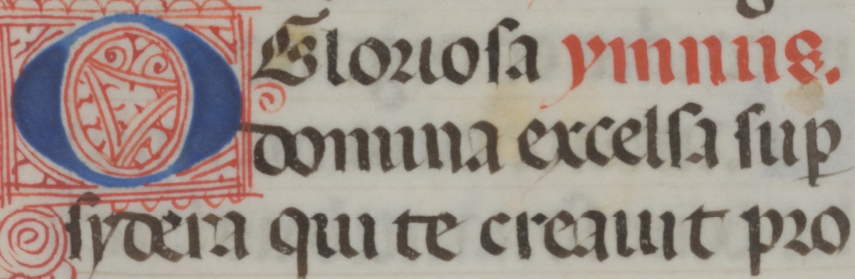 O Gloriosa ymnus.
domina excelsa sup
sydera qui te creauit pro